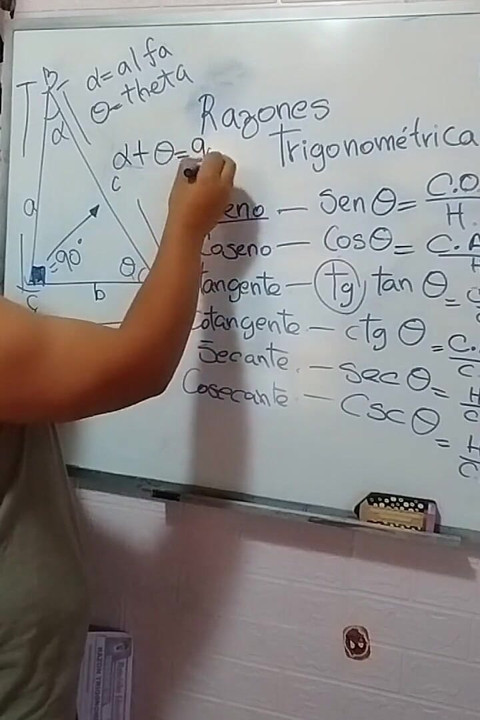 B
α = alfa
θ = theta
α
Razones
Trigonométrica
α + θ = 9
c
a
= 90°
θ
C
b
eno — Sen θ = C.O / H
Coseno — Cos θ = C.A / H
tangente — tg tan θ = C
Cotangente — ctg θ = C. / C.
Secante. — Sec θ = H / C
Cosecante — Csc θ = H / C